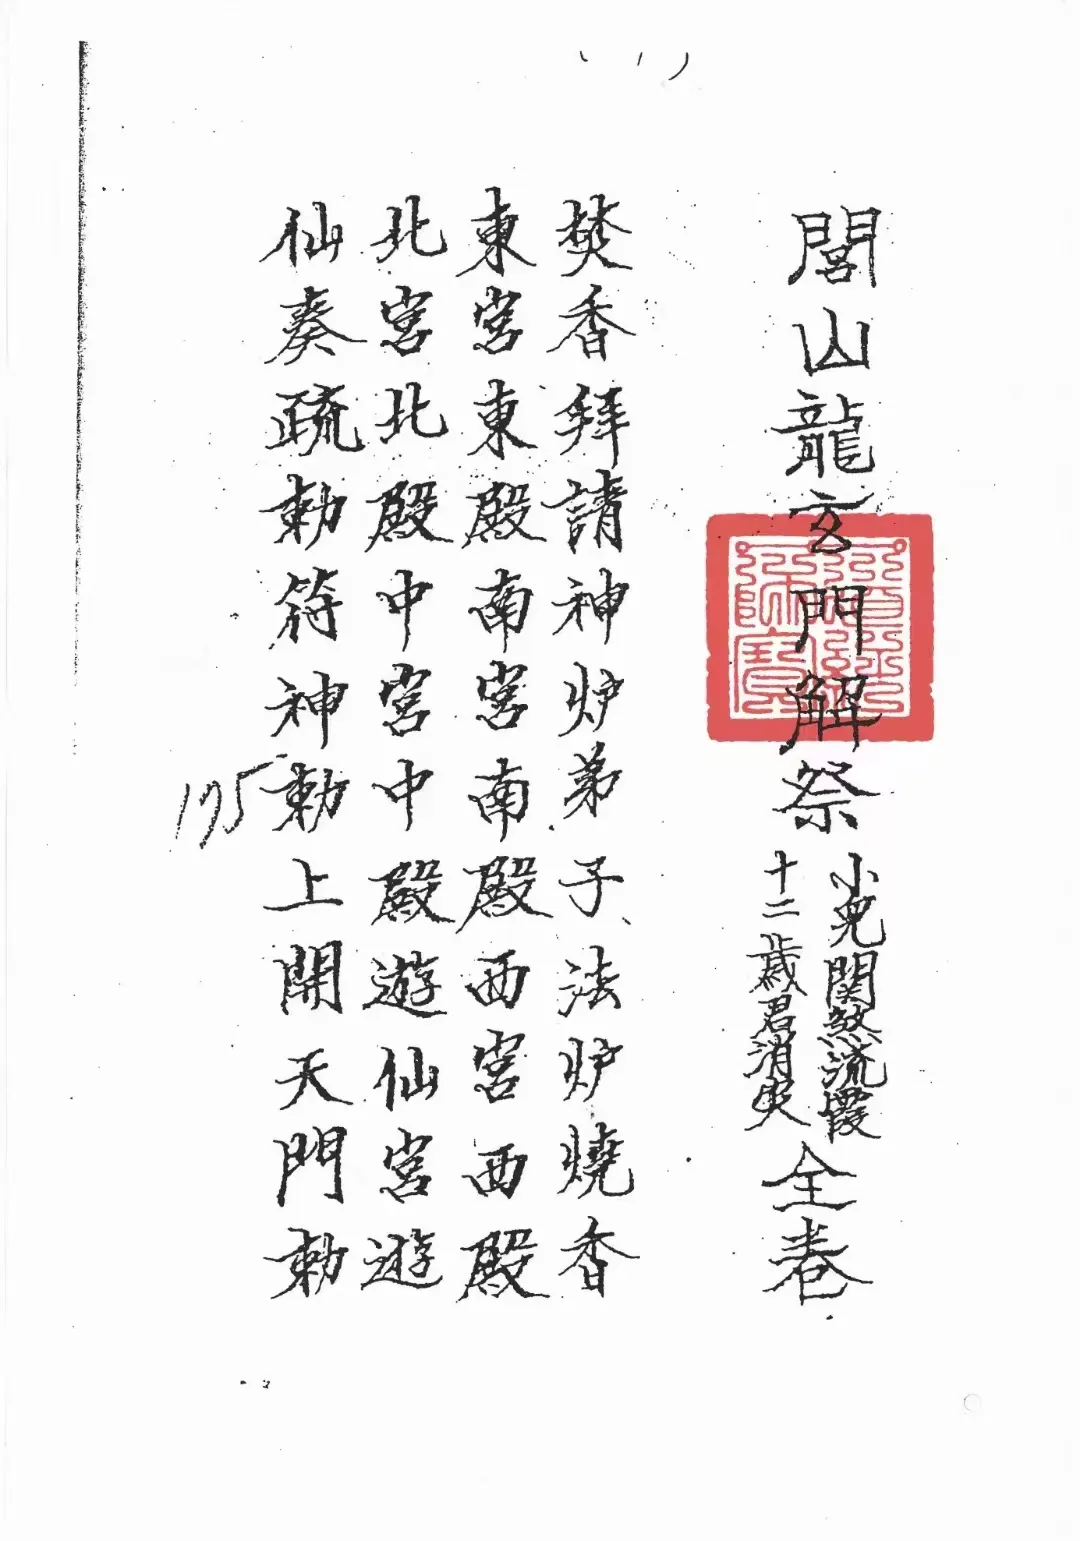 (1)
閭山龍玄門解祭
小兒関煞流霞
十二歲君消災
全卷
焚香拜請神炉弟子法炉燒香
東宮東殿南宮南殿西宮西殿
北宮北殿中宮中殿遊仙宮遊
仙奏疏勅符神勅上開天門勅
195
道經師寶